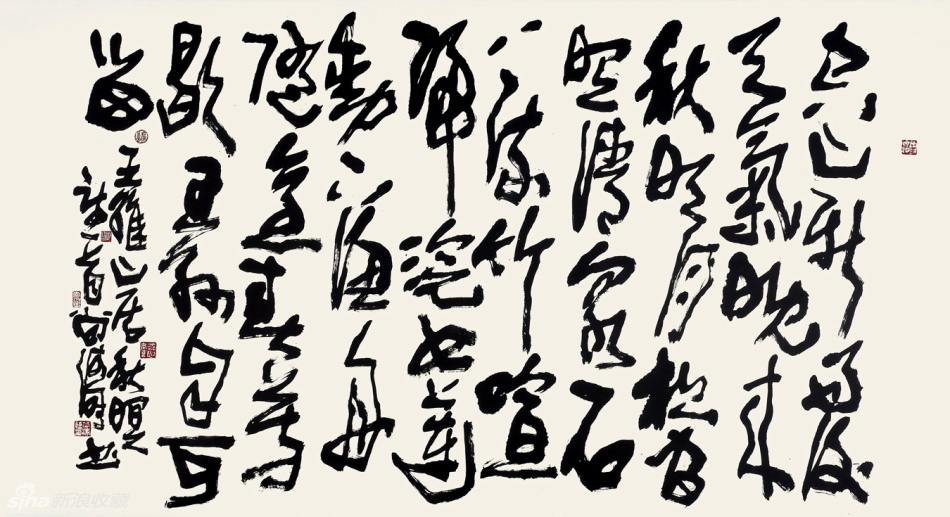 空山新雨後
天氣晚來
秋明月松間
照清泉石
上流竹喧
歸浣女蓮
動下漁舟
隨意春芳
歇王孫自可
留
王維山居秋暝
sina新浪收藏